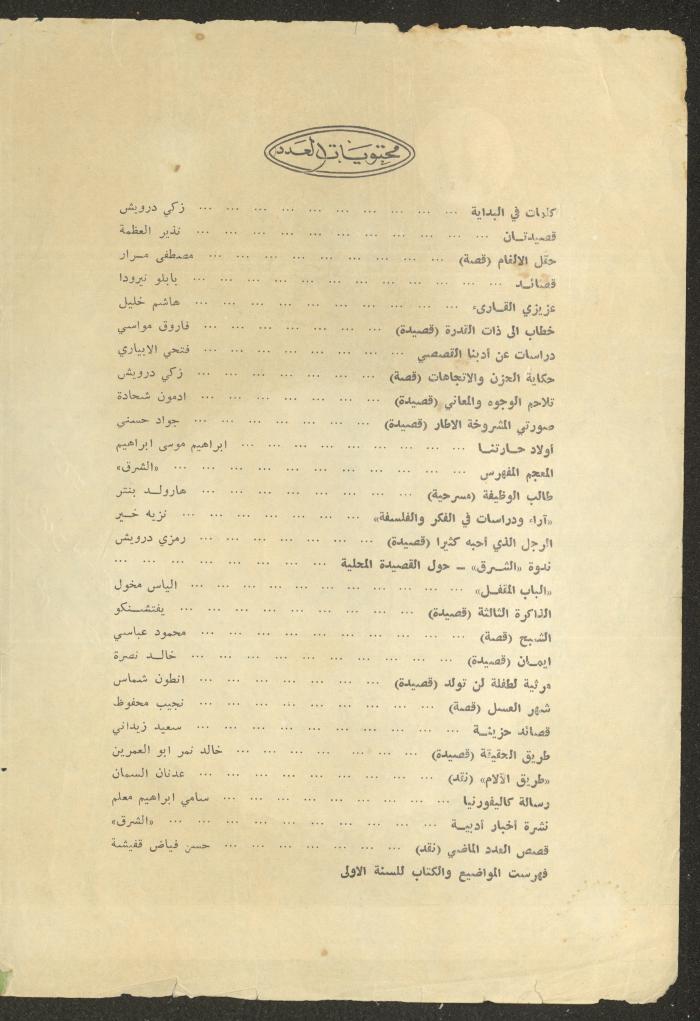 محتويات العدد
كلمات في البداية ... ... ... ... ... ... ... ... ... ... زكي درويش
قصيدتــان ... ... ... ... ... ... ... ... ... ... ... نذير العظمة
حقل الالغام (قصة) ... ... ... ... ... ... ... ... ... مصطفى مــرار
قصائــد ... ... ... ... ... ... ... ... ... ... ... ... بابلو نيرودا
عزيزي القــارىء ... ... ... ... ... ... ... ... ... ... هاشم خليل
خطاب الى ذات القدرة (قصيدة) ... ... ... ... ... ... ... فاروق مواسي
دراسات عن أدبنا القصصي ... ... ... ... ... ... ... ... فتحي الابياري
حكاية الحزن والاتجاهات (قصة) ... ... ... ... ... ... ... زكي درويش
تلاحم الوجوه والمعاني (قصيدة) ... ... ... ... ... ... ... ادمون شحادة
صورتي المشروخة الاطار (قصيدة) ... ... ... ... ... ... ... جواد حسني
أولاد حــارتنــا ... ... ... ... ... ... ... ... ... ابراهيم موسى ابراهيم
المعجم المفهرس ... ... ... ... ... ... ... ... ... ... ... «الشرق»
طالب الوظيفة (مسرحية) ... ... ... ... ... ... ... ... هارولــد بنتر
«آراء ودراسات في الفكر والفلسفة» ... ... ... ... ... ... ... نزيه خــير
الرجل الذي أحبه كثيرا (قصيدة) ... ... ... ... ... ... ... رمزي درويش
ندوة «الشــرق» ــ حول القصيدة المحلية ... ... ... ... ... ... ... ...
«الباب المقفــل» ... ... ... ... ... ... ... ... ... ... الياس مخول
الذاكرة الثالثة (قصيدة) ... ... ... ... ... ... ... ... ... يفتشــنكو
الشبح (قصة) ... ... ... ... ... ... ... ... ... ... محمود عباسي
ايمــان (قصيدة) ... ... ... ... ... ... ... ... ... ... خالــد نصرة
مرثية لطفلة لن تولد (قصيدة) ... ... ... ... ... ... ... انطون شماس
شهر العسل (قصة) ... ... ... ... ... ... ... ... ... ... نجيب محفوظ
قصائد حزينــة ... ... ... ... ... ... ... ... ... ... سعيد زيداني
طريق الحقيقة (قصيدة) ... ... ... ... ... ... ... خالد نمر ابو العمرين
«طريق الآلام» (نقد) ... ... ... ... ... ... ... ... ... عدنان السمان
رسالة كاليفورنيا ... ... ... ... ... ... ... ... ... سامي ابراهيم معلم
نشرة أخبار أدبيــة ... ... ... ... ... ... ... ... ... ... «الشرق»
قصص العدد الماضي (نقد) ... ... ... ... ... ... ... حسن فياض قفيشة
فهرست المواضيع والكتاب للسنة الاولى